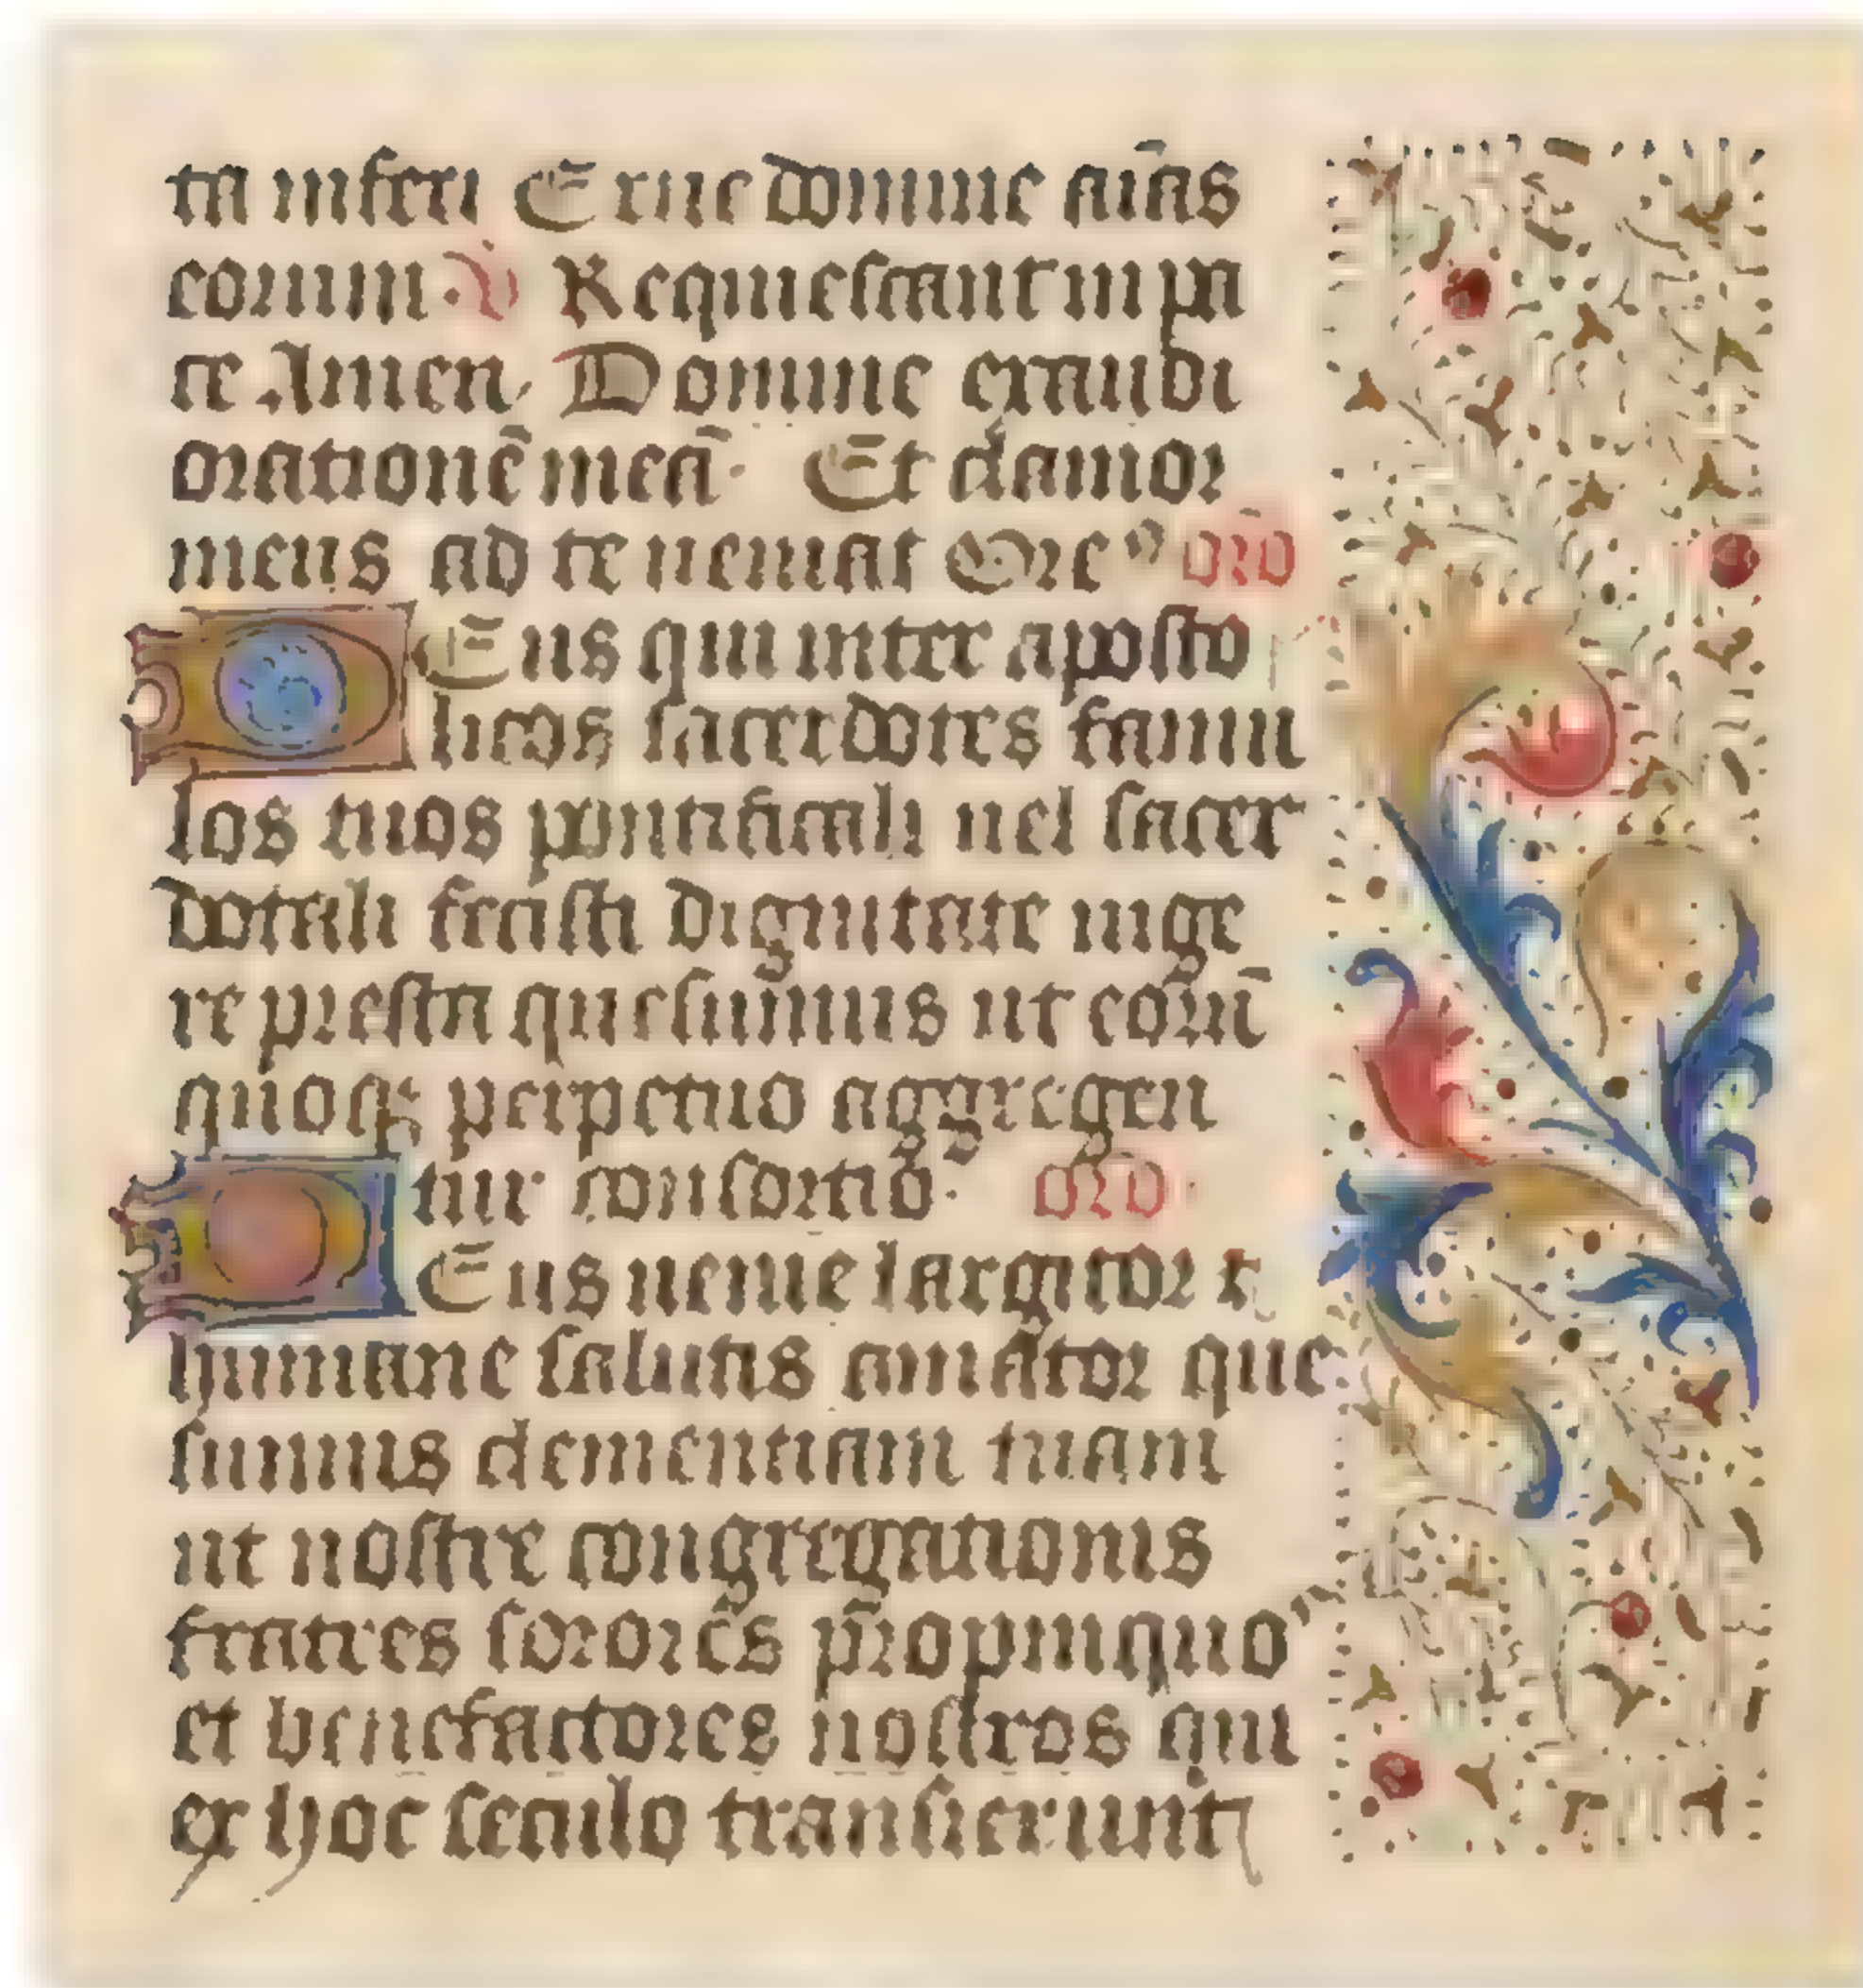 ta inferi Erue domine aĩas
eorum. V Requiescant in pa
ce Amen. Domine exaudi
orationẽ meã. Et clamor
meus ad te ueniat Ore² oro
Deus qui inter aposto
licos sacerdotes famu
los tuos pontificali uel sacer
dotali fecisti dignitate uige
re presta quesumus ut eorũ
quoqꝫ perpetuo aggregen
tur consortio. oro.
Deus uenie largitor ⁊
humane salutis amator que
sumus clementiam tuam
ut nostre congregationis
fratres sorores propinquo²
et benefactores nostros qui
ex hoc seculo transierunt